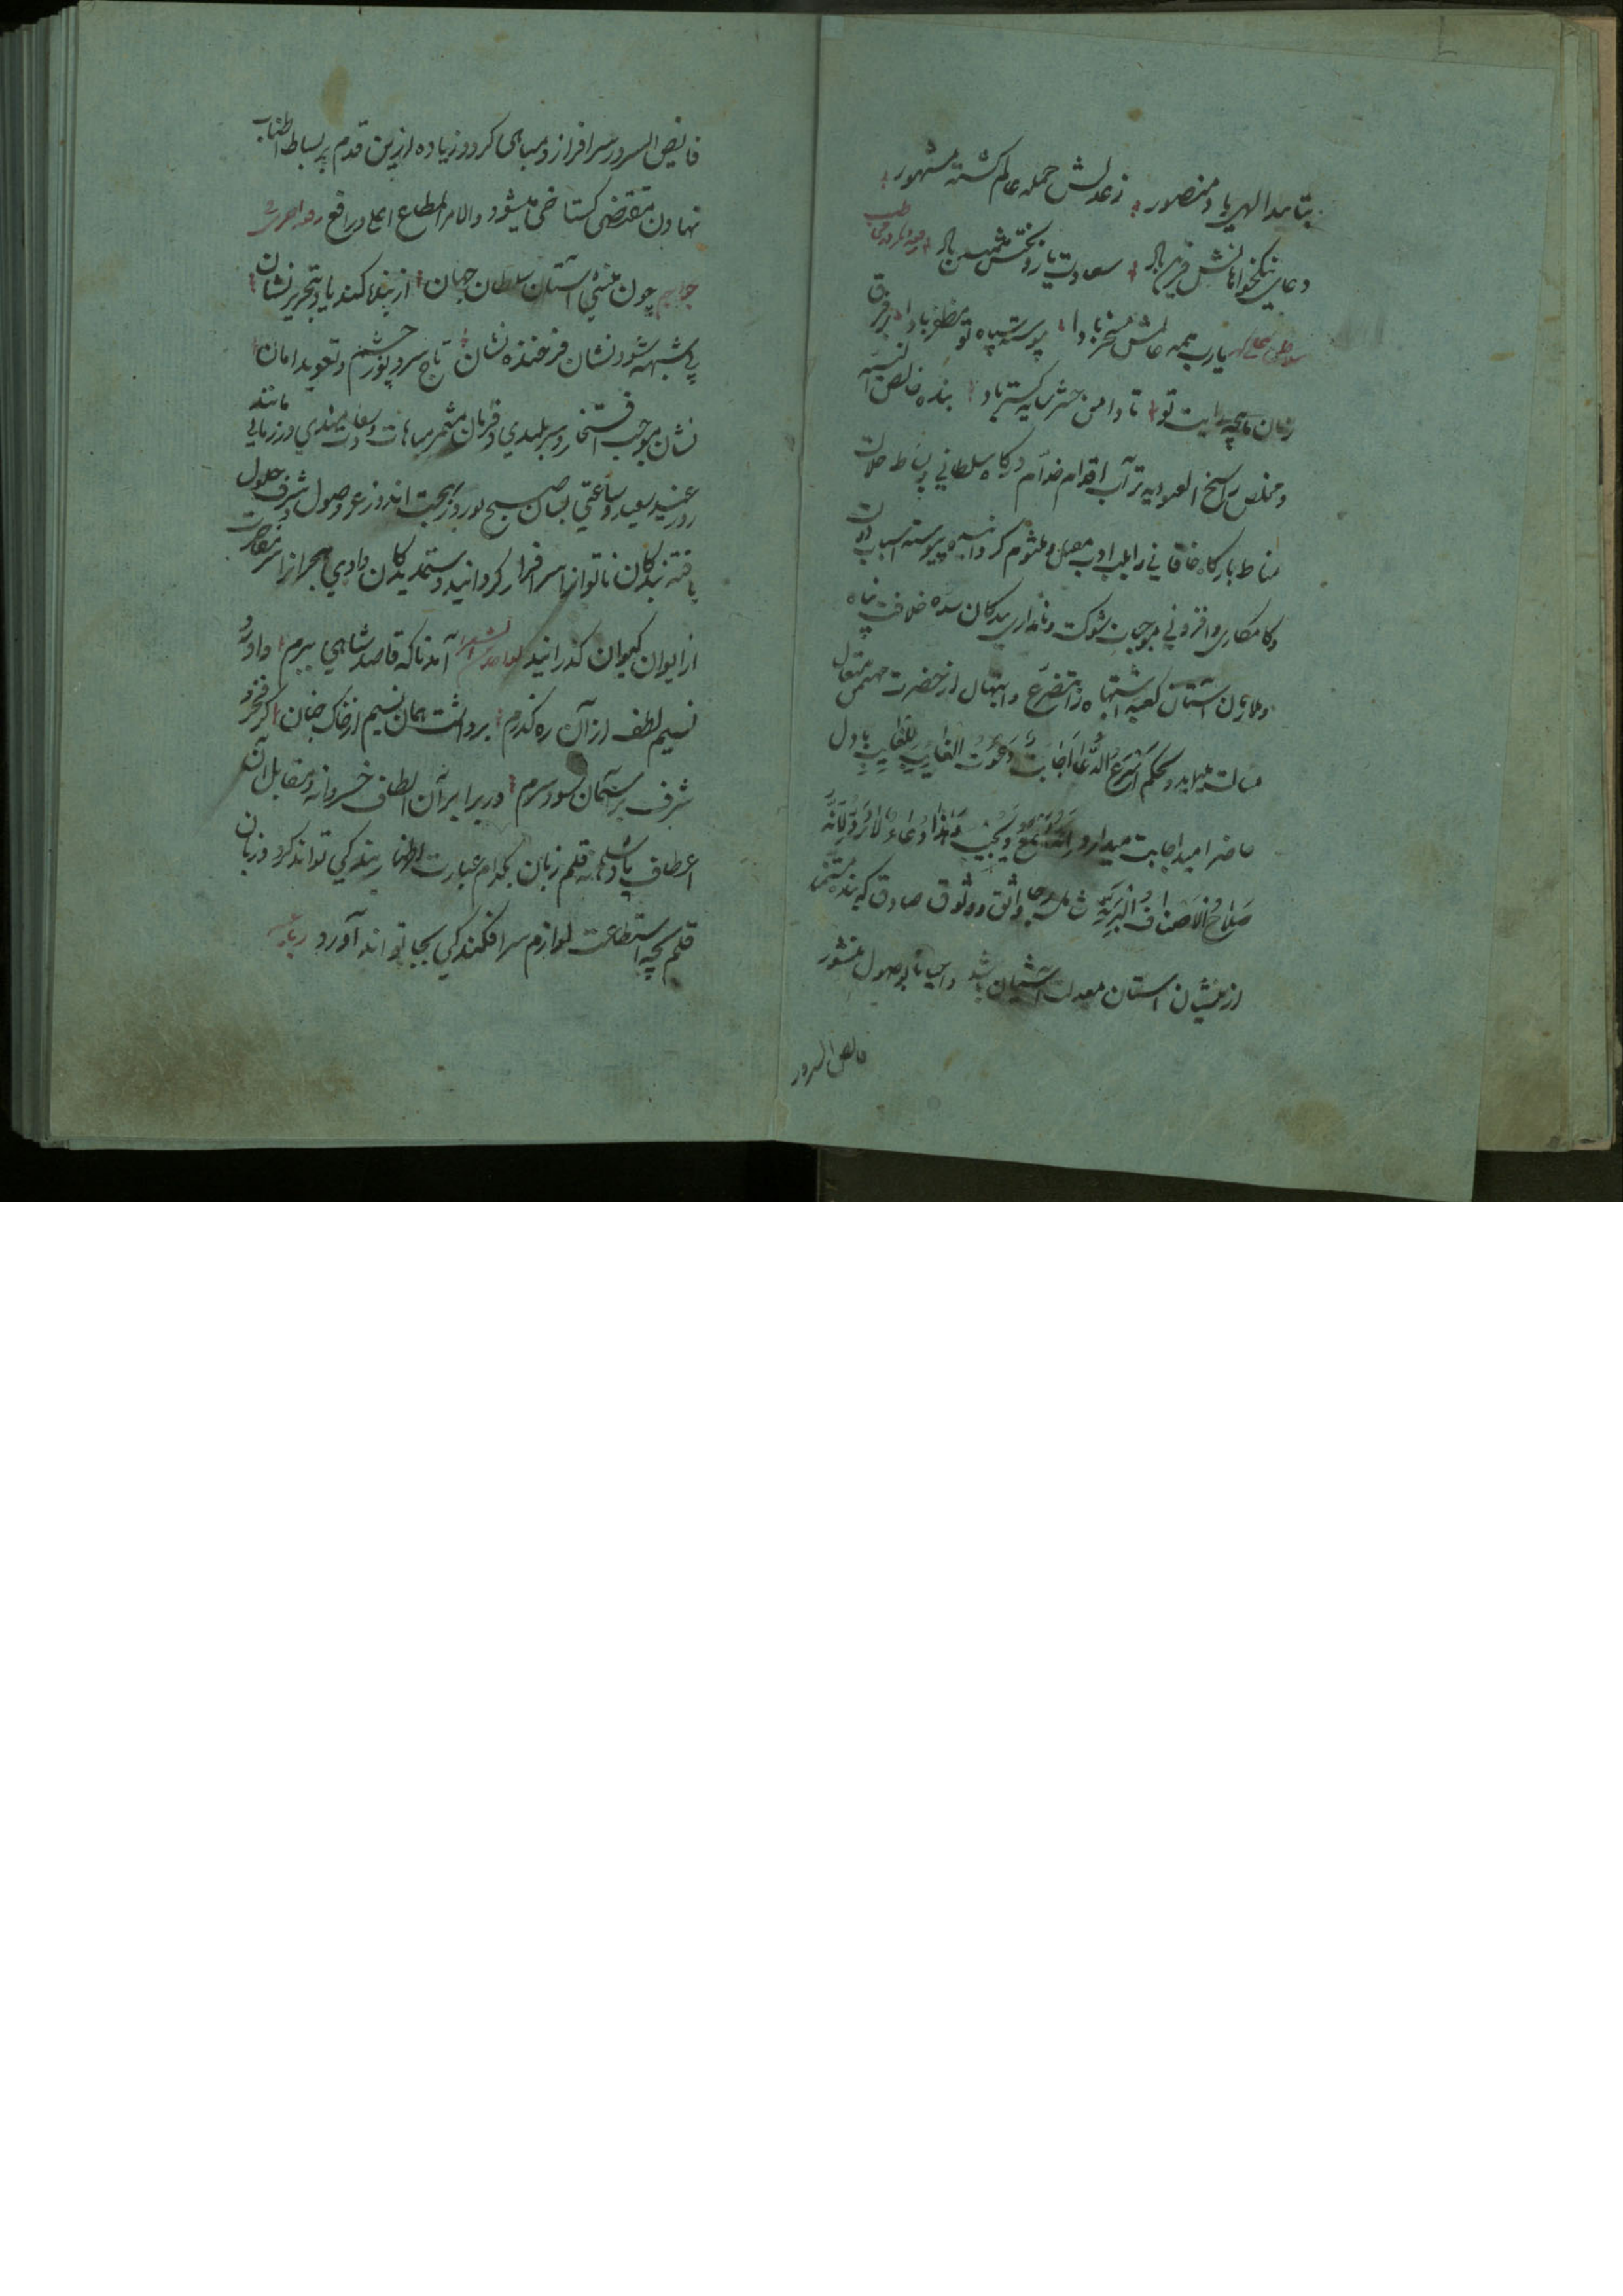 بتایید الهی باد منصور زعدلش جمله عالم کشته مشهور
دعای نیکخواهانش قرین باد سعادت با روبختش همنشین باد
یارب همه عالمش مسخر بادا پیوسته سپاه تو مظفر بادا بر فرق
زمان رایت تو تا دامن حشر سایه کستر باد بنده خالص النیة
و مخلص راسخ العبودیه تراب اقدام خدام درکاه سلطانی بساط
مناط بارکاه خاقانی را بلب ادب و ملثوم کردانیده پیوسته اسباب
و کامکاری و افزونی موجبات شوکت و نامداری بندکان سده خلافت پناه
و ملازمان آستان کعبه اشتباه را بتضرع و ابتهال از حضرت مهیمن متعال
مسالت مینماید و بحکم اسرع الدعا اجابت دعوت الغایب للغایب با دل
حاضر امید اجابت میدارد و یسمع و یجیب هذا دعاء لا یرد لانه
صلاح لاصناف البریة واثق و وثوق صادق که بنده
از منشیان آستان معدلت آشیان باشد و احیانا بوصول منشور
فایض السرور
فایض السرور سرافراز و مباهی کردد و زیاده ازین قدم بر بساط اطناب
نهادن مقتضی کستاخی میشود والامر المطاع اعلی و رافع
جواب چون منشی آستان سلطان جهان از بنده کند یاد بتحریر نشان
بی شبهه شود نشان فرخنده نشان تاج سر و نور چشم و تعویذ امان
نشان موجب افتخار و سربلندی و فرمان مثمر مباهات و سعادتمندی در زمانی مانند
روز عید سعید و ساعتی بسان صبح نوروز بهجت اندوز عز وصول و شرف حلول
یافته بندکان ناتوانرا سرافراز کردانید و ستمدیدکان وادی هجرانرا
از ایوان کیوان کذرانید آمد ناکه قاصد شاهی ببرم داد
نسیم لطف از آن ره کذرم برداشت همان نسیم از خاک چنان کز فخر و
شرف بر آسمان سود سرم در برابر آن الطاف خسروانه و مقابل آن
اعطاف پادشاهانه قلم زبان بکدام عبارت اظهار بندکی تواند کرد و زبان
قلم بچه استطاعت لوازم سرافکندکی بجا تواند آورد رباعیه